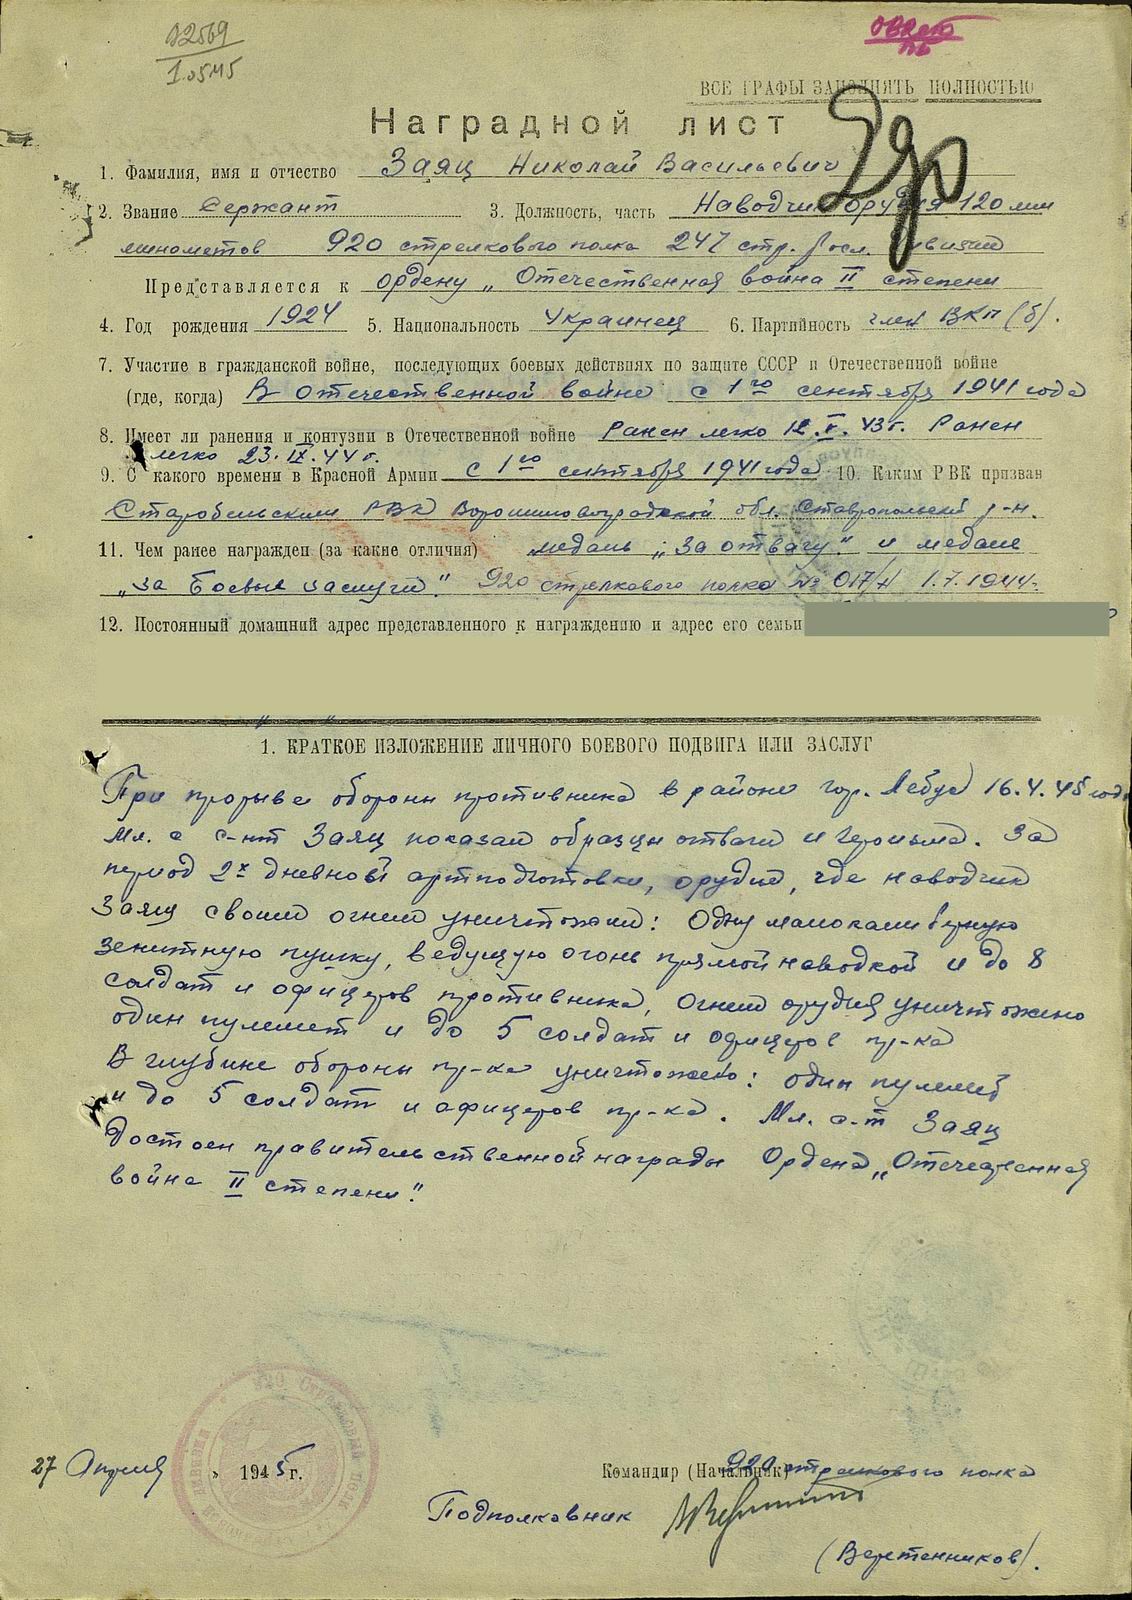 02569
1.05.45
ВСЕ ГРАФЫ ЗАПОЛНЯТЬ ПОЛНОСТЬЮ
Наградной лист
1. Фамилия, имя и отчество Заяц Николай Васильевич
2. Звание Сержант 3. Должность, часть Наводчик орудия 120 мм
минометов 920 стрелкового полка 247 стр. дивизии
Представляется к ордену „Отечественная война II степени
4. Год рождения 1924 5. Национальность Украинец 6. Партийность член ВКП(б).
7. Участие в гражданской войне, последующих боевых действиях по защите СССР и Отечественной войне
(где, когда) В отечественной войне с 1го сентября 1941 года
8. Имеет ли ранения и контузии в Отечественной войне Ранен легко 12.V.43г. Ранен
легко 23.IX.44г.
9. С какого времени в Красной Армии с 1го сентября 1941 года 10. Каким РВК призван
Старобельским РВК Ворошиловградской обл. Ставропольский р-н.
11. Чем ранее награжден (за какие отличия) медаль „За отвагу" и медаль
„За боевые заслуги". 920 стрелкового полка № 017/н 1.7.1944.
12. Постоянный домашний адрес представленного к награждению и адрес его семьи
1. КРАТКОЕ ИЗЛОЖЕНИЕ ЛИЧНОГО БОЕВОГО ПОДВИГА ИЛИ ЗАСЛУГ
При прорыве обороны противника в районе гор. Лебус 16.4.45 года
Мл. с-нт Заяц показал образцы отваги и героизма. За
период 2х дневной артподготовки, орудие, где наводчик
Заяц своим огнем уничтожил: Одну малокалиберную
зенитную пушку, ведущую огонь прямой наводкой и до 8
солдат и офицеров противника, огнем орудия уничтожено
один пулемет и до 5 солдат и офицеров пр-ка
В глубине обороны пр-ка уничтожено: один пулемет
и до 5 солдат и офицеров пр-ка. Мл. с-т Заяц
Достоен правительственной награды Ордена „Отечественная
война II степени".
27 Апреля » 1945 г.
Командир (Начальник) 920 стрелкового полка
Подполковник
(Веретенников).